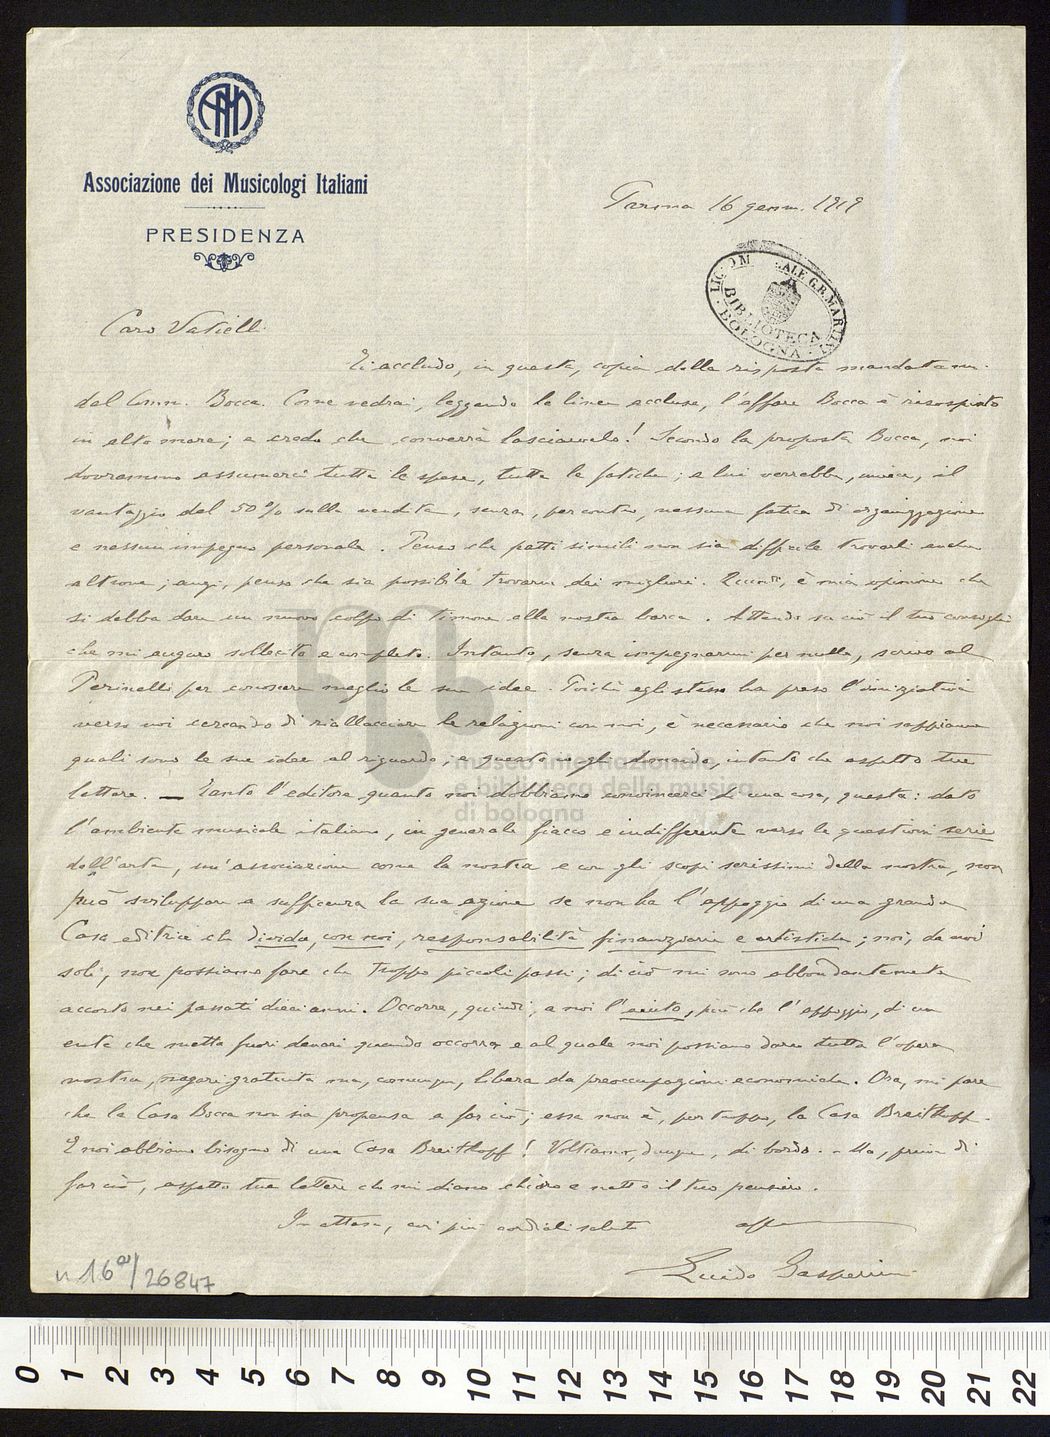 AMI
Associazione dei Musicologi Italiani
PRESIDENZA
Parma 16 genn. 1919
BIBLIOTECA
BOLOGNA
G.B. MARTINI
Caro Vatielli
Ti accludo, in questa, copia della risposta mandatami
dal Comm. Bocca. Come vedrai, leggendo le linee accluse, l'affare Bocca è risospinto
in alto mare; e credo che converrà lasciarvelo! Secondo la proposta Bocca, noi
dovremmo assumerci tutte le spese, tutte le fatiche; a lui verrebbe, invece, il
vantaggio del 50% sulla vendita, senza, per contro, nessuna fatica di organizzazione
e nessun impegno personale. Penso che patti simili non sia difficile trovarli anche
altrove; anzi, penso che sia possibile trovarne dei migliori. Quindi, è mia opinione che
si debba dare un nuovo colpo di timone alla nostra barca. Attendo su ciò il tuo consiglio
che mi auguro sollecito e completo. Intanto, senza impegnarmi per nulla, scrivo al
Perinelli per conoscere meglio le sue idee. Poichè egli stesso ha preso l'iniziativa
verso noi cercando di riallacciare le relazioni con noi, è necessario che noi sappiamo
quali sono le sue idee al riguardo; e questo io gli domando, intanto che aspetto tue
lettere. — Tanto l'editore quanto noi dobbiamo convincerci di una cosa, questa: dato
l'ambiente musicale italiano, in generale fiacco e indifferente verso le questioni serie
dell'arte, un'associazione come la nostra e con gli scopi serissimi della nostra, non
può sviluppare a sufficenza la sua azione se non ha l'appoggio di una grande
Casa editrice che divida, con noi, responsabilità finanziarie e artistiche; noi, da noi
soli, non possiamo fare che troppo piccoli passi; di ciò mi sono abbondantemente
accorto nei passati dieci anni. Occorre, quindi, a noi l'aiuto, più che l'appoggio, di un
ente che metta fuori denari quando occorra e al quale noi possiamo dare tutta l'opera
nostra, magari gratuita ma, comunque, libera da preoccupazioni economiche. Ora, mi pare
che la Casa Bocca non sia propensa a far ciò; essa non è, purtroppo, la Casa Breitkopf.
E noi abbiamo bisogno di una Casa Breitkopf! Voltiamo, dunque, di bordo. — Ma, prima di
far ciò, aspetto tue lettere che mi diano chiaro e netto il tuo pensiero.
In attesa, coi più cordiali saluti aff
Guido Gasperini
n. 16 a/26847
museo internazionale
e biblioteca della musica
di bologna
0 1 2 3 4 5 6 7 8 9 10 11 12 13 14 15 16 17 18 19 20 21 22